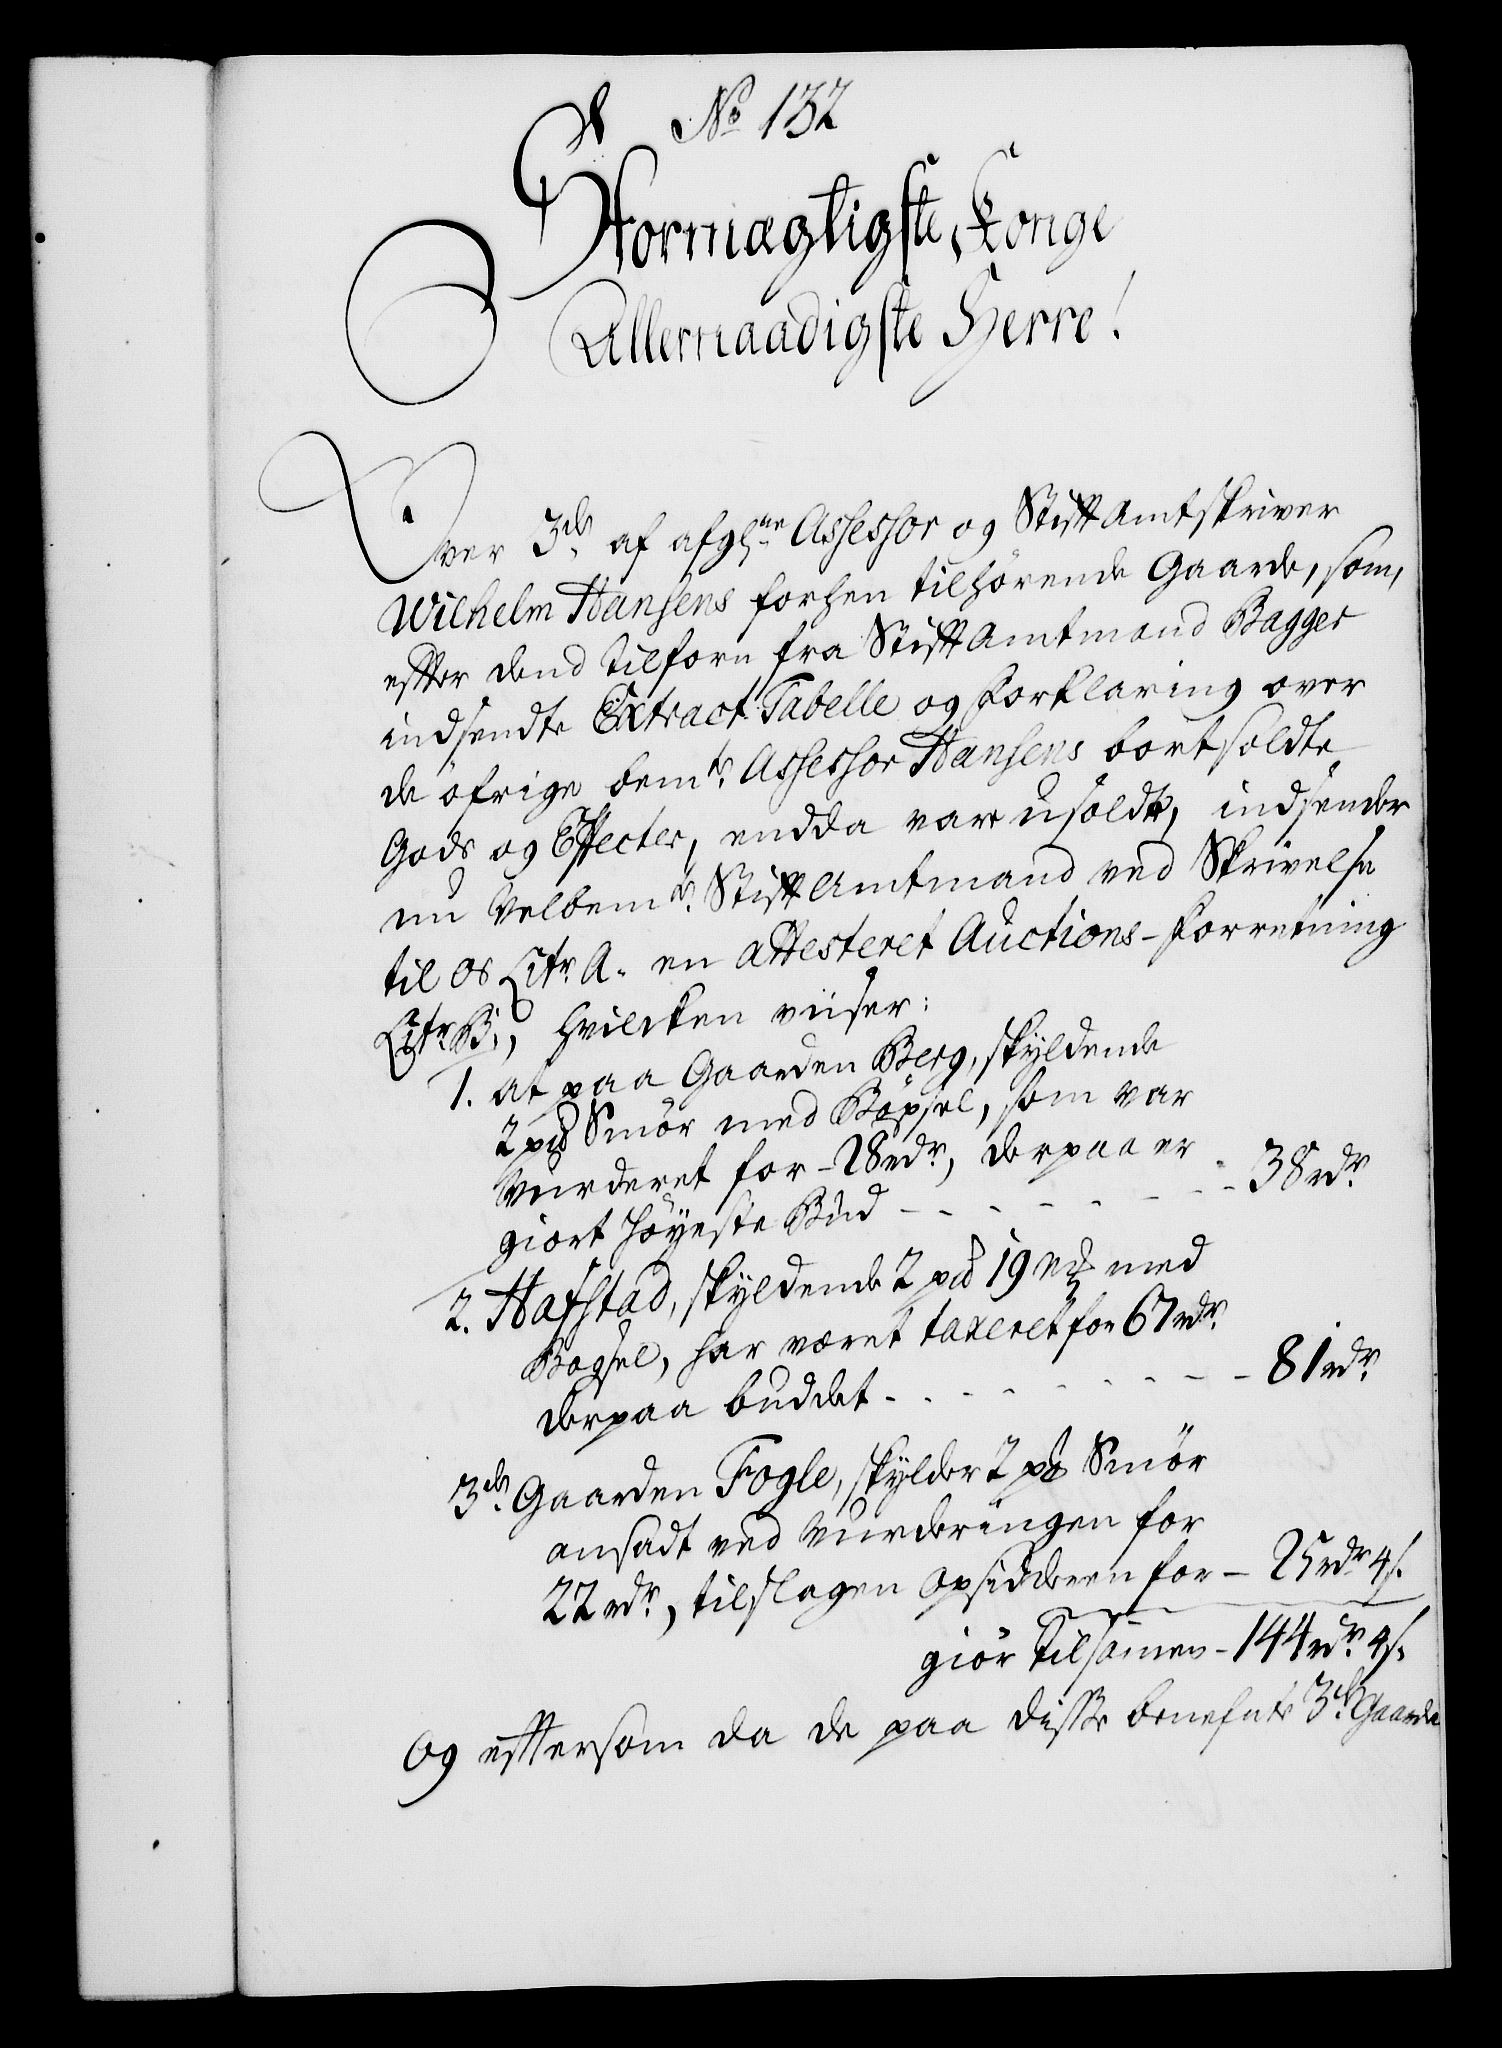 No 132
Stormægtigste Konge
Allernaadigste Herre!
Over 3de af afgl:ne Assessor og Stift Amtskriver
Wilhelm Hansens forhen tilhørende Gaarde, som,
efter dend tilforn fra Stift Amtmand Bagger
indsendte Extract Tabelle og Forklaring over
de öfrige bemte Assessor Hansens bortsoldte
Gods og Effecter, endda vare usoldte, indsender
nu Velbemte Stift Amtmand ved Skrivelse
til os Litr. A. en attesteret Auctions-Forretning
Litr. B., hvilcken viiser:
1. at paa Gaarden Berg, skyldende
2 pd Smör med Böxsel, som var
Vurderet for - 28 rdr, derpaa er
giort höyeste Bud - - - - - - - 38 rdr.
2. Hafstad, skyldende 2 pd 19 mk med
Bogsel, har været taxeret for 67 rdr.
derpaa budet - - - - - - - - 81 rdr.
3de Gaarden Fogle, skylder 2 pd Smör
ansadt ved Vurderingen for
22 rdr., tilslagen Opsidderen for - 25 rdr 4 s.
giör Tilsamen - 144 rdr. 4 s.
Og eftersom da de paa disse benefnte 3de Gaarde